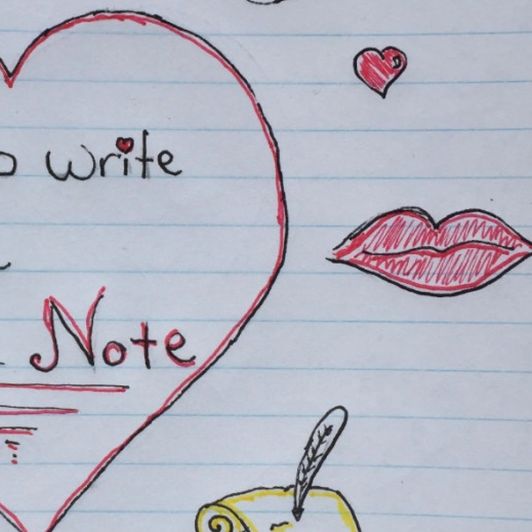 write
Note